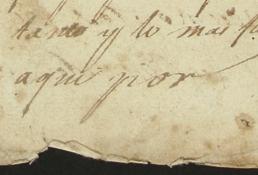 tanto y lo mas
aqui por